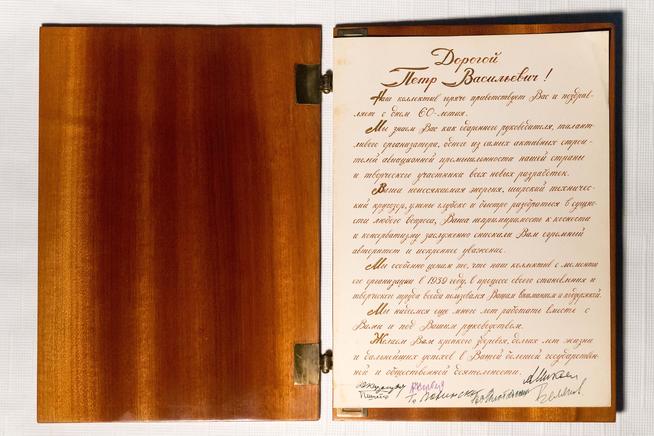 Дорогой
Петр Васильевич!
Наш коллектив горячо приветствует Вас и поздрав-
ляет с днем 60-летия.
Мы знаем Вас как одаренного руководителя, талант-
ливого организатора, одного из самых активных строи-
телей авиационной промышленности нашей страны
и творческого участника всех новых разработок.
Ваша неиссякаемая энергия, широкий техничес-
кий кругозор, умение глубоко и быстро разобраться в сущно-
сти любого вопроса, Ваша непримиримость к косности
и консерватизму заслуженно снискали Вам огромный
авторитет и искреннее уважение.
Мы особенно ценим то, что наш коллектив с момента
его организации в 1939 году, в процессе своего становления и
творческого труда всегда пользовался Вашим вниманием и поддержкой.
Мы надеемся еще много лет работать вместе с
Вами и под Вашим руководством.
Желаем Вам крепкого здоровья, долгих лет жизни
и дальнейших успехов в Вашей большой государствен-
ной и общественной деятельности.
АМикоян
Беляков